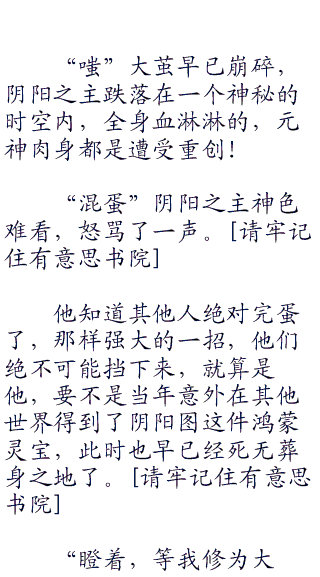 “嗤”大茧早已崩碎，
阴阳之主跌落在一个神秘的
时空内，全身血淋淋的，元
神肉身都是遭受重创！
“混蛋”阴阳之主神色
难看，怒骂了一声。[请牢记
住有意思书院]
他知道其他人绝对完蛋
了，那样强大的一招，他们
绝不可能挡下来，就算是
他，要不是当年意外在其他
世界得到了阴阳图这件鸿蒙
灵宝，此时也早已经死无葬
身之地了。[请牢记住有意思
书院]
“瞪着，等我修为大